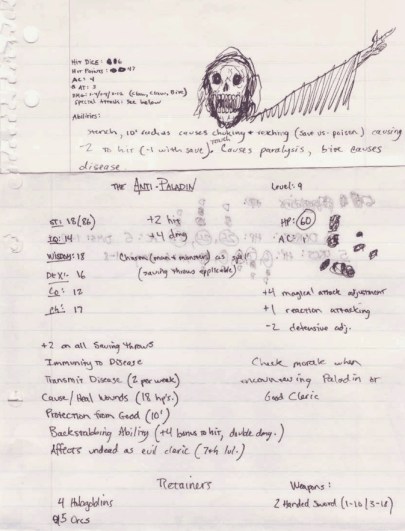 Hit Dice: 6
Hit Points: 47
AC: 4
# AT: 3
Special Attack: See below
Abilities:
Stench, 10' radius causes choking + retching (save vs. poison) causing
-2 to hit (-1 with save). Touch Causes paralysis, bite causes
disease
The Anti-Paladin
Level: 9
ST: 18 (86) +2 hit HP: 60
IQ: 14 +4 dmg AC:
Wisdom: 18 Charm (man + monsters) as spell
Dex: 16 (saving throws applicable)
Co: 12 +4 magical attack adjustment
Ch: 17 +1 reaction attacking
-2 defensive adj.
+2 on all Saving throws
Immunity to Disease Check morale when
Transmit Disease (2 per week) encountering Paladin or
Cause/Heal Wounds (18 hp's.) Good Cleric
Protection from Good (10')
Backstabbing Ability (+4 bonus to hit, double dmg.)
Affects undead as evil cleric (7th lvl.)
Retainers Weapons:
4 Hobgoblins 2 Handed Sword (1-10/3-18)
15 Orcs